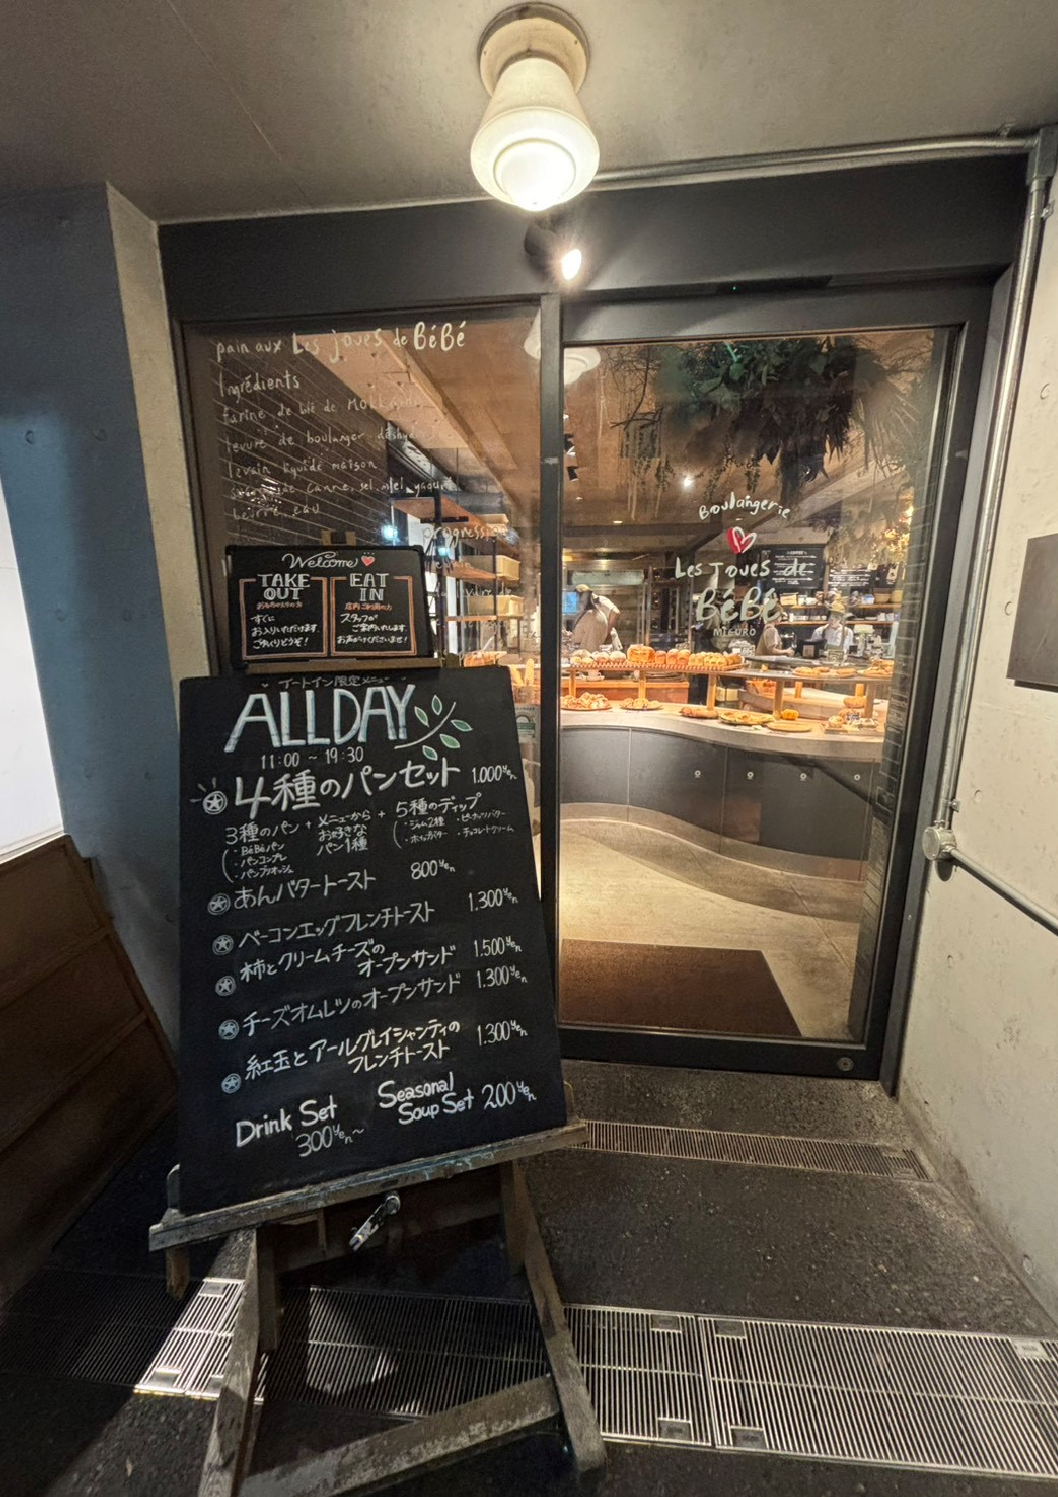 pain aux Les joues de BéBé
Ingrédients
farine de blé de
levure de boulanger
levain liquide maison
canne, sel, miel, yaourt
beurre, eau
Boulangerie
Les Joues de
BéBé
MEGURO
Welcome
TAKE
OUT
お持ち帰りの方
すぐに
お入りいただけます
ごゆっくりどうぞ!
EAT
IN
店内ご利用の方
スタッフが
ご案内いたします
お声がけくださいませ!
イートイン限定メニュー
ALLDAY
11:00 ~ 19:30
4種のパンセット 1.000yen
3種のパン + メニューから + 5種のディップ
お好きな
パン1種
・BéBéパン
・パンコンプレ
・ジャム2種 ・ピーナッツバター
・ホイップバター ・チョコレートクリーム
あんバタートースト 800yen
ベーコンエッグフレンチトースト 1.300yen
柿とクリームチーズの
オープンサンド 1.500yen
チーズオムレツのオープンサンド 1.300yen
紅玉とアールグレイシャンティの
フレンチトースト 1.300yen
Drink Set
300yen~
Seasonal
Soup Set 200yen